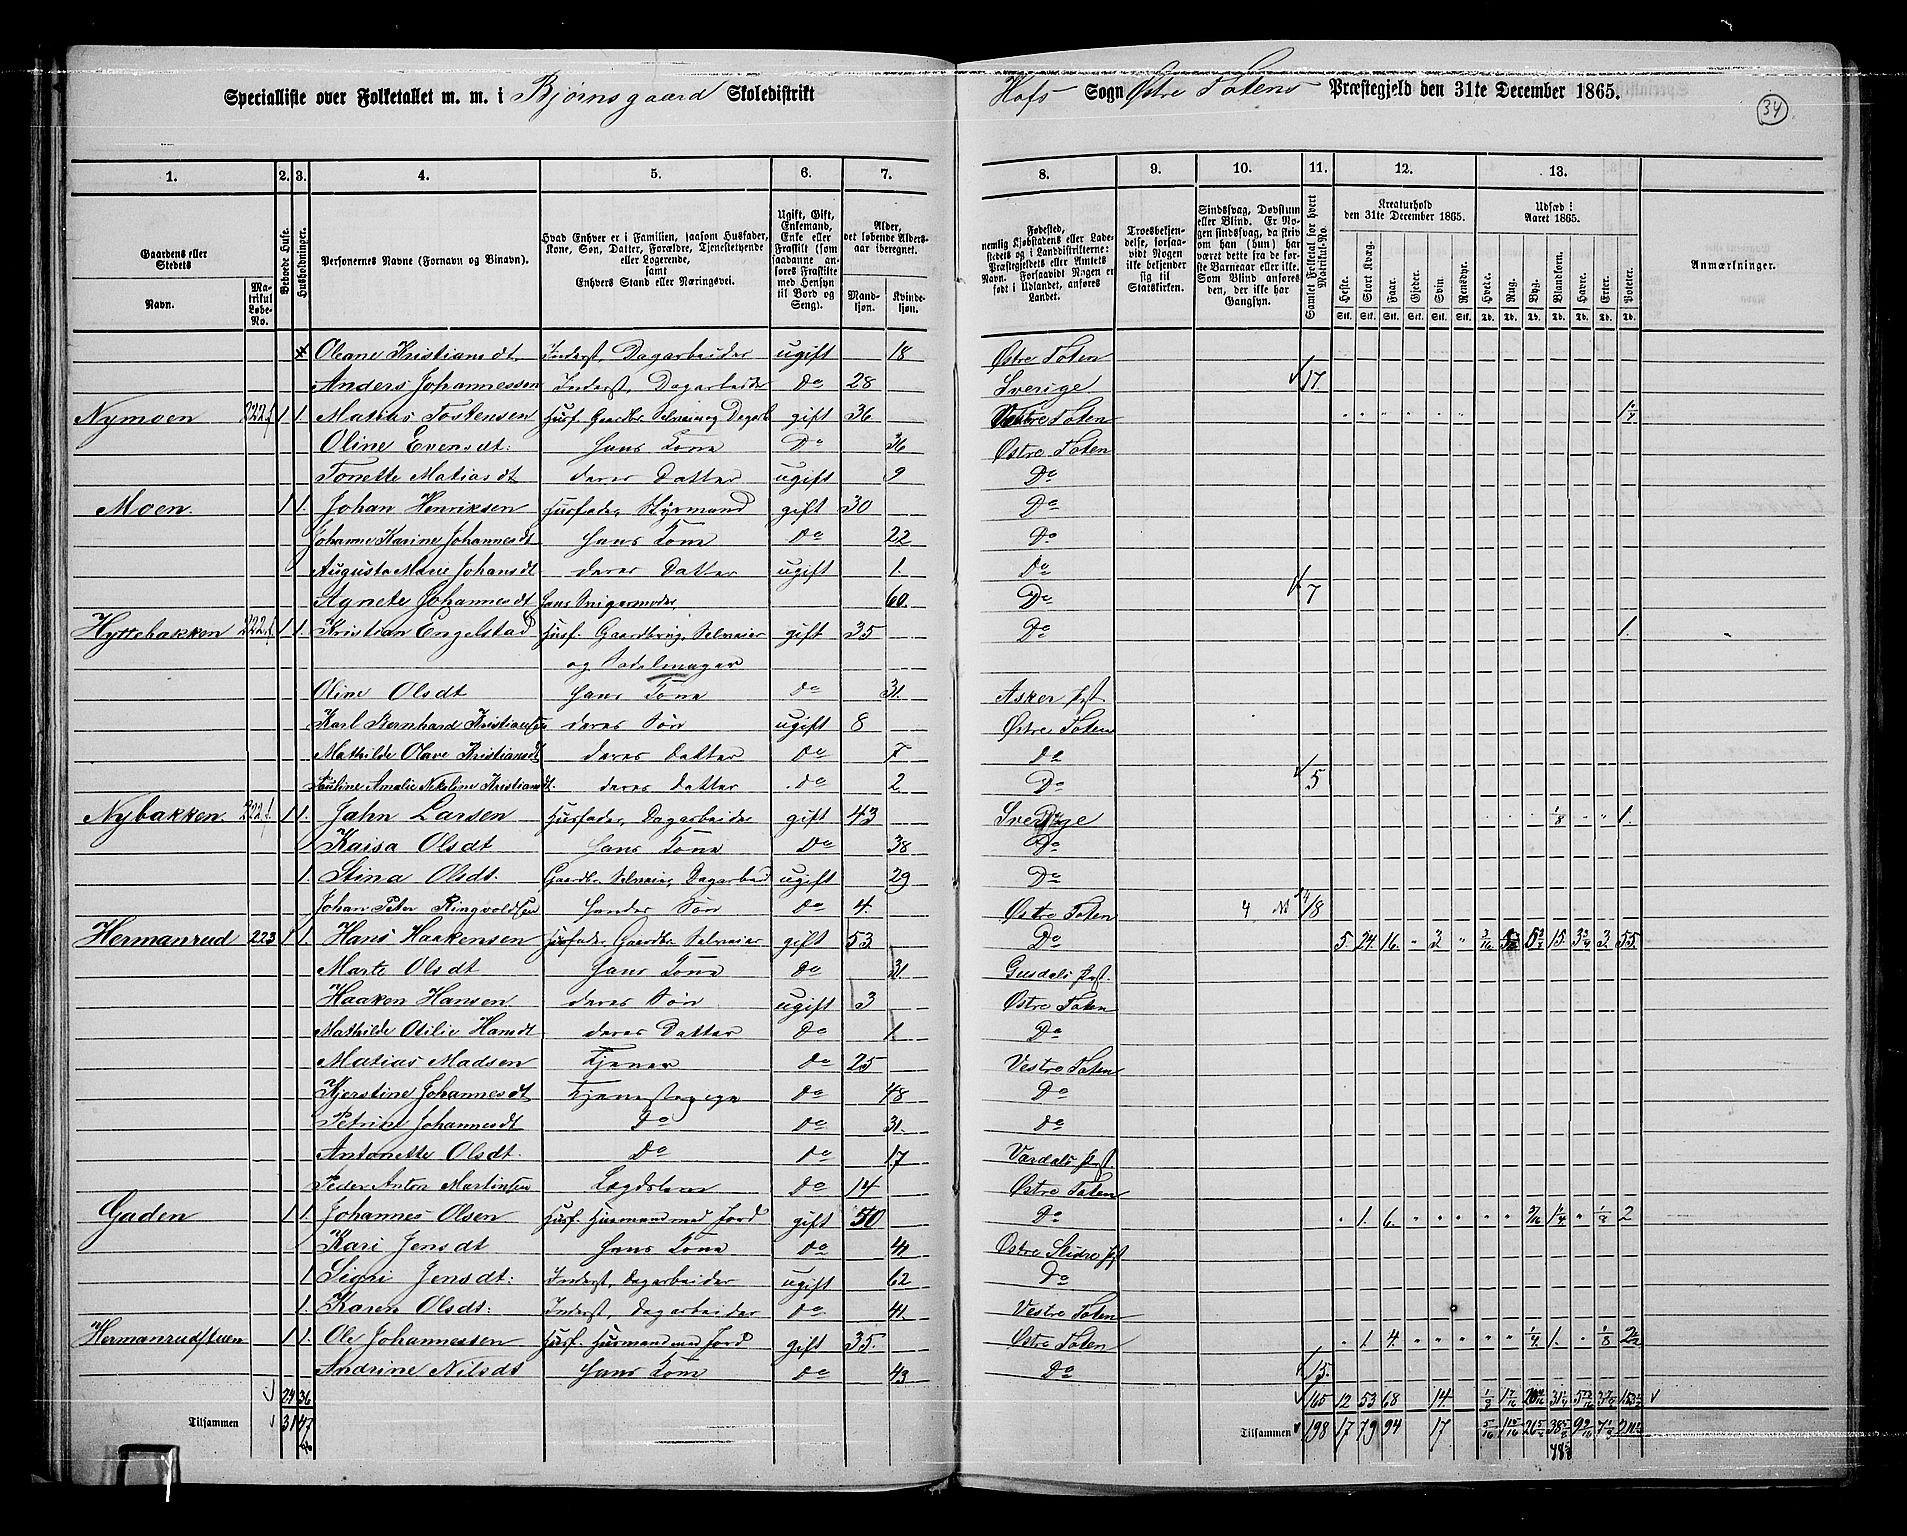 Specialliste over Folketallet m. m. i Bjørnsgaard Skoledistrikt Hofs Sogn Østre Totens Præstegjeld den 31te December 1865.
34
1. 2. 3. 4. 5. 6. 7. 8. 9. 10. 11. 12. 13.
Gaardens eller Stedets Navn. Matrikul Løbe-No. Beboede Huse. Husholdninger. Personernes Navne (Fornavn og Binavn). Hvad Enhver er i Familien, saasom Husfader, Kone, Søn, Datter, Forældre, Tjenestetyende eller Logerende, samt Enhvers Stand eller Næringsvei. Ugift, Gift, Enkemand, Enke eller Fraskilt (som saadanne anføres Fraskilte med Hensyn til Bord og Seng). Alder, det løbende Aldersaar iberegnet. Mandkjøn. Kvindekjøn.
Fødested, nemlig Kjøbstadens eller Ladestedets eller i Landdistrikterne: Præstegjeldets eller Amtets Forsaavidt Nogen er født i Udlandet, anføres Landet. Troesbekjendelse, forsaavidt Nogen ikke bekjender sig til Statskirken. Sindssvag, Døvstum eller Blind. Er Nogen sindssvag, da skriv om han (hun) har været dette fra de første Barneaar eller ikke. Som Blind anføres den, der ikke har Gangsyn. Samlet Folketal for hvert Matrikul-No. Kreaturhold den 31te December 1865. Heste. Stort Kvæg. Faar. Gjeder. Svin. Rensdyr. Udsæd i Aaret 1865. Hvede. Rug. Byg. Blandkorn. Havre. Erter. Poteter. Anmærkninger.
Oleane Kristiansdt. Inderst, Dagarbeider ugift 18 Østre Toten
Anders Johannessen Inderst, Dagarbeider Do 28 Sverige 17.
Nymoen 222 1 1. Matias Tostensen gift 36 Vestre Toten 1/4
Oline Evensdt: Hans Kone Do 36 Østre Toten
Tonette Matiasdt deres Datter ugift 9 Do
Moen. 1 1. Johan Henriksen Husfader, Styrmand gift 30 Do
Johanne Karine Johannesdt Hans Kone Do 22 Do
Augusta Marie Johansdt deres Datter ugift 1. Do
Agnete Johannesdt Hans Svigermoder, 60. Do 7
Hyttebakken 222 1 1. Kristian Engelstad Husf. Gaardbrug. Selveier gift 35 Do 1.
og Sadelmager
Oline Olsdt Hans Kone Do 31. Asker Pgt
Karl Bernhard Kristiansen deres Søn ugift 8 Østre Toten
Mathilde Olave Kristiansdt deres Datter Do 7 Do
Pauline Amalie Nikoline Kristiansdt. deres Datter Do 2 Do 5
Nybakken 222 1 1. Jahn Larsen Husfader, Dagarbeider gift 43 Sverige 1/8 1.
Kaisa Olsdt Hans Kone Do 38 Do
1. Stina Olsdt. Gaardbr. Selveier, Dagarbeid ugift 29 Do
Johan Peter Ringvoldsen Hendes Søn Do 4. Østre Toten 8
Hermanrud 223 1 1. Hans Haakensen Husfader, Gaardbr. Selveier gift 53 Do 5. 24. 16. 3 3/16 15. 55.
Marte Olsdt Hans Kone Do 31. Gusdals Pgt.
Haaken Hansen. deres Søn ugift 3 Østre Toten
Mathilde Otilie Hansdt deres Datter Do 1. Do
Matias Madsen Tjener Do 25 Vestre Toten
Kjerstine Johannesdt Tjenestepige Do 48 Do
Petrine Johannesdt Do Do 31. Do
Antonette Olsdt. Do Do 17 Vardals Pgt.
Peder Anton Martinsen Lægdslem Do 14 Østre Toten
Gaden 1 1. Johannes Olsen Husf. Husmand med Jord gift 50 Do 1. 6. 3/16 1 1/4 1/8 2
Kari Jensdt Hans Kone Do 41 Østre Slidre Pgt
1 Signi Jensdt: Inderst, Dagarbeider ugift 62 Do
1. Karen Olsdt: Inderst, Dagarbeider Do 41. Vestre Toten
Hermanrudstuen 1 1. Ole Johannessen Husf. Husmand med Jord gift 35. Østre Toten 1 4. 1/4 1. 1/8 2 1/2
Andrine Nilsdt Hans Kone Do 43 Do 15.
24 36 165 12 53 68 14.
Tilsammen 31 47 Tilsammen 198 17 79 94 17